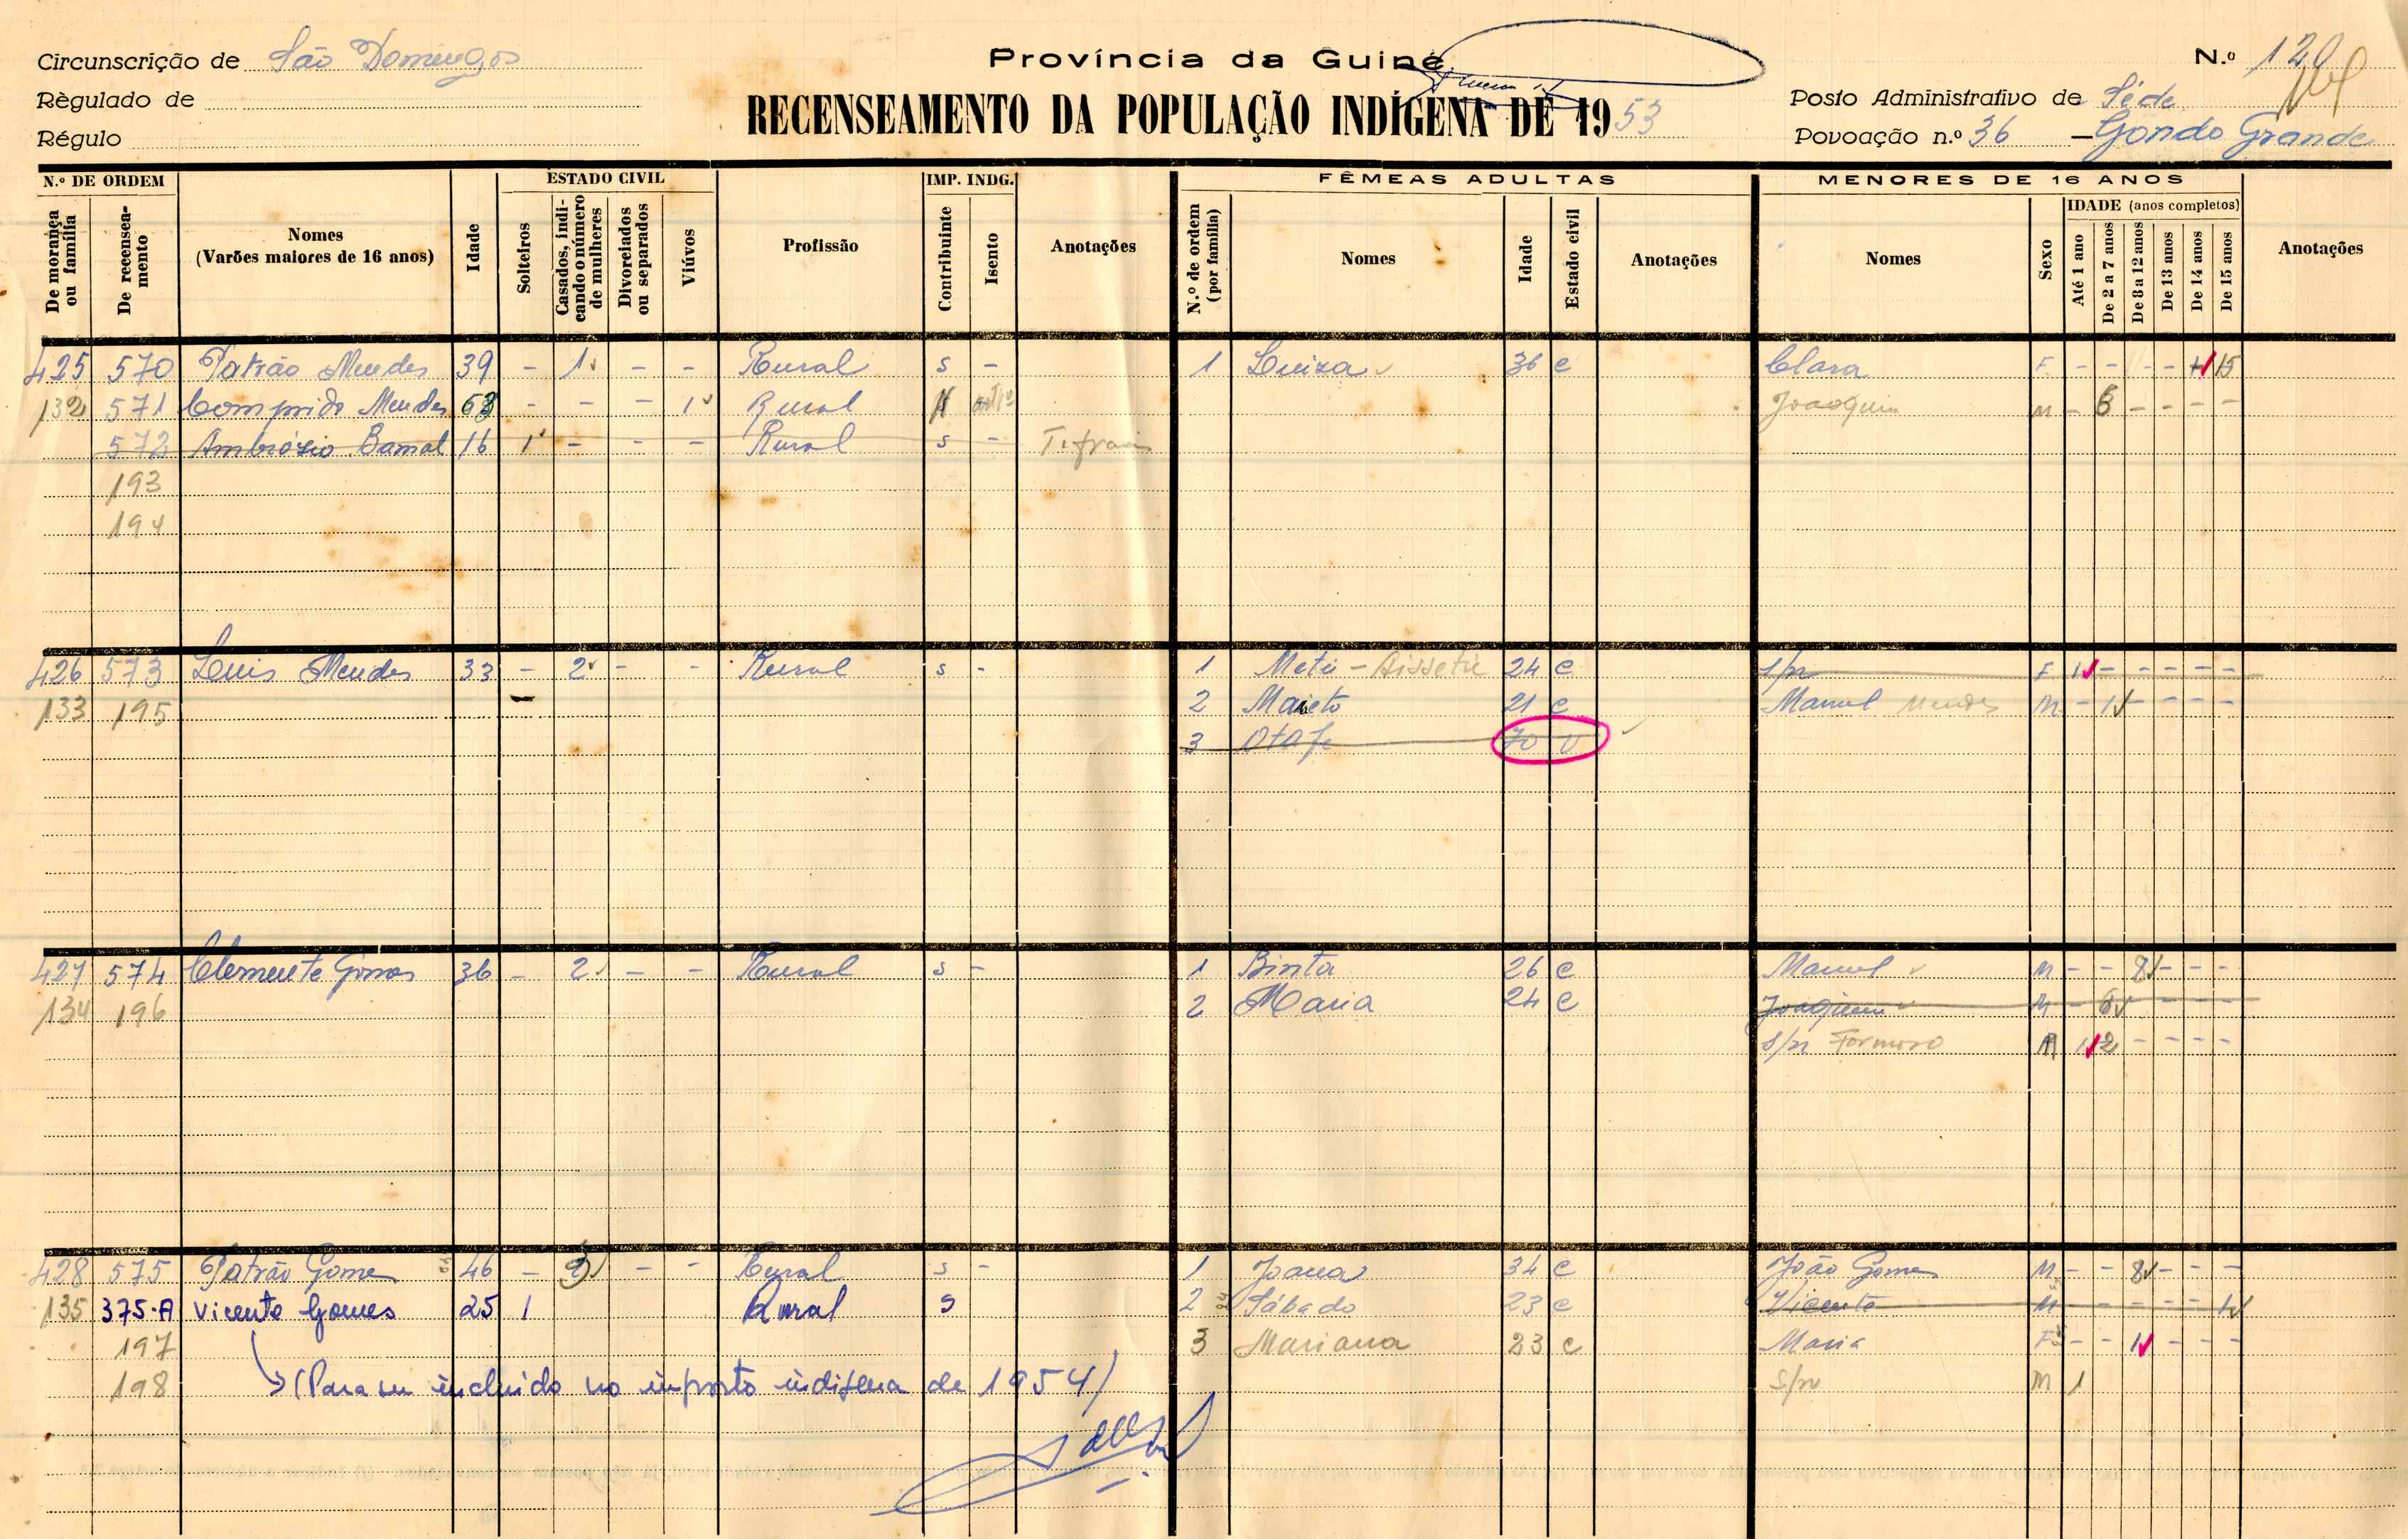 Circunscrição de São Domingos
Província da Guiné
N.º 120
Règulado de
RECENSEAMENTO DA POPULAÇÃO INDÍGENA DE 1953
Posto Administrativo de Séde
Régulo
Povoação n.º 36 — Gondo Grande
N.º DE ORDEM
ESTADO CIVIL
IMP. INDG.
FÊMEAS ADULTAS
MENORES DE 16 ANOS
De morança ou família
De recenseamento
Nomes (Varões maiores de 16 anos)
Idade
Solteiros
Casados, indicando o número de mulheres
Divorciados ou separados
Viúvos
Profissão
Contribuinte
Isento
Anotações
N.º de ordem (por família)
Nomes
Idade
Estado civil
Anotações
Nomes
Sexo
IDADE (anos completos)
Até 1 ano
De 2 a 7 anos
De 8 a 12 anos
De 13 anos
De 14 anos
De 15 anos
Anotações
425 570 Patrão Mendes 39 - 1 - - Rural s - 1 Luiza 36 c Clara F - - - - 15
132 571 Comprido Mendes - - - 1 Rural Joaquim M - 6 - - - -
572 Ambrósio Bamal 16 1 - - - Rural s -
193
194
426 573 Luis Mendes 33 - 2 - - Rural s - 1 Metu - Aissetu 24 c s/n F 1 - - - - -
133 195 2 Maieto 21 c Manuel Mendes M - 1 - - - -
3 Otafe 70 v
427 574 Clemente Gomes 36 - 2 - - Rural s - 1 Binta 26 c Manuel M - - 8 - - -
134 196 2 Maria 24 c Joaquim M - 6 - - - -
s/n Formoso M 1 2 - - - -
428 575 Patrão Gomes 46 - 3 - - Rural s - 1 Joana 34 c João Gomes M - - 8 - - -
135 375-A Vicente Gomes 25 1 Rural s 2 Sábado 23 c Vicente M - - - - - 1
197 3 Mariana 23 c Maria F - - 1 - - -
198 (Para ser incluido no imposto indígena de 1954) s/n M 1